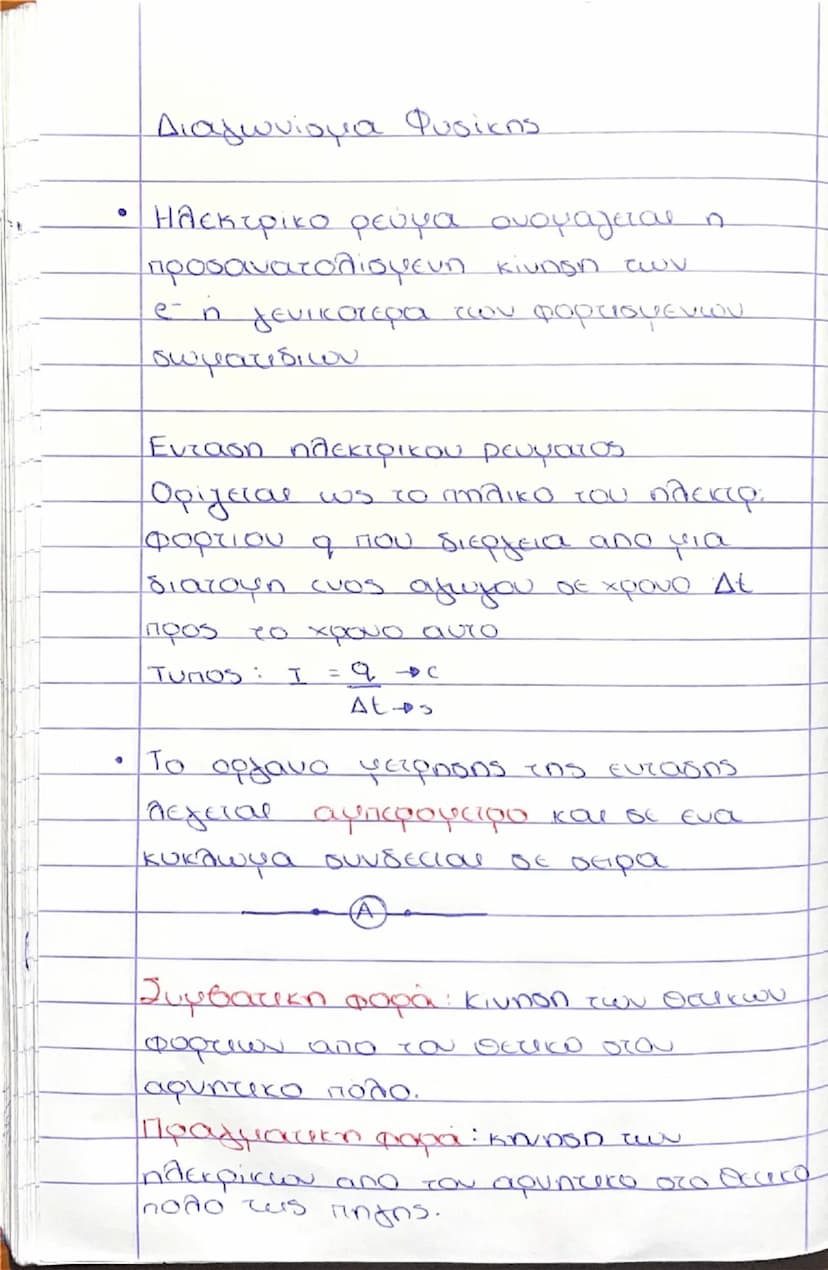 Διαγωνίσμα Φυσίκης
• Ηλεκτρικο ρεύμα ονομαζεται η
προσανατολισμενη κίνηση των
e⁻ ή γενικοτερα των φορτισμενων
σωματιδιων
Ενταση ηλεκτρικου ρευματος
Οριζεται ως το πηλικο του ηλεκτρ.
φορτιου q που διερχεια απο μια
διατομη ενος αγωγου σε χρονο Δt
προς το χρονο αυτο
Τυπος: I = q → C
Δt → s
• Το οργανο μετρησης της εντασης
λεγεται αμπερομετρο και σε ενα
κυκλωμα συνδεεται σε σειρα
A
Συμβατικη φορά: κινηση των θετικων
φορτιων απο τον θετικο στον
αρνητικο πολο.
Πραγματικη φορά: κηνηση των
ηλεκρίκιων απο τον αρνητικο στο θετικο
πολο της πηγης.